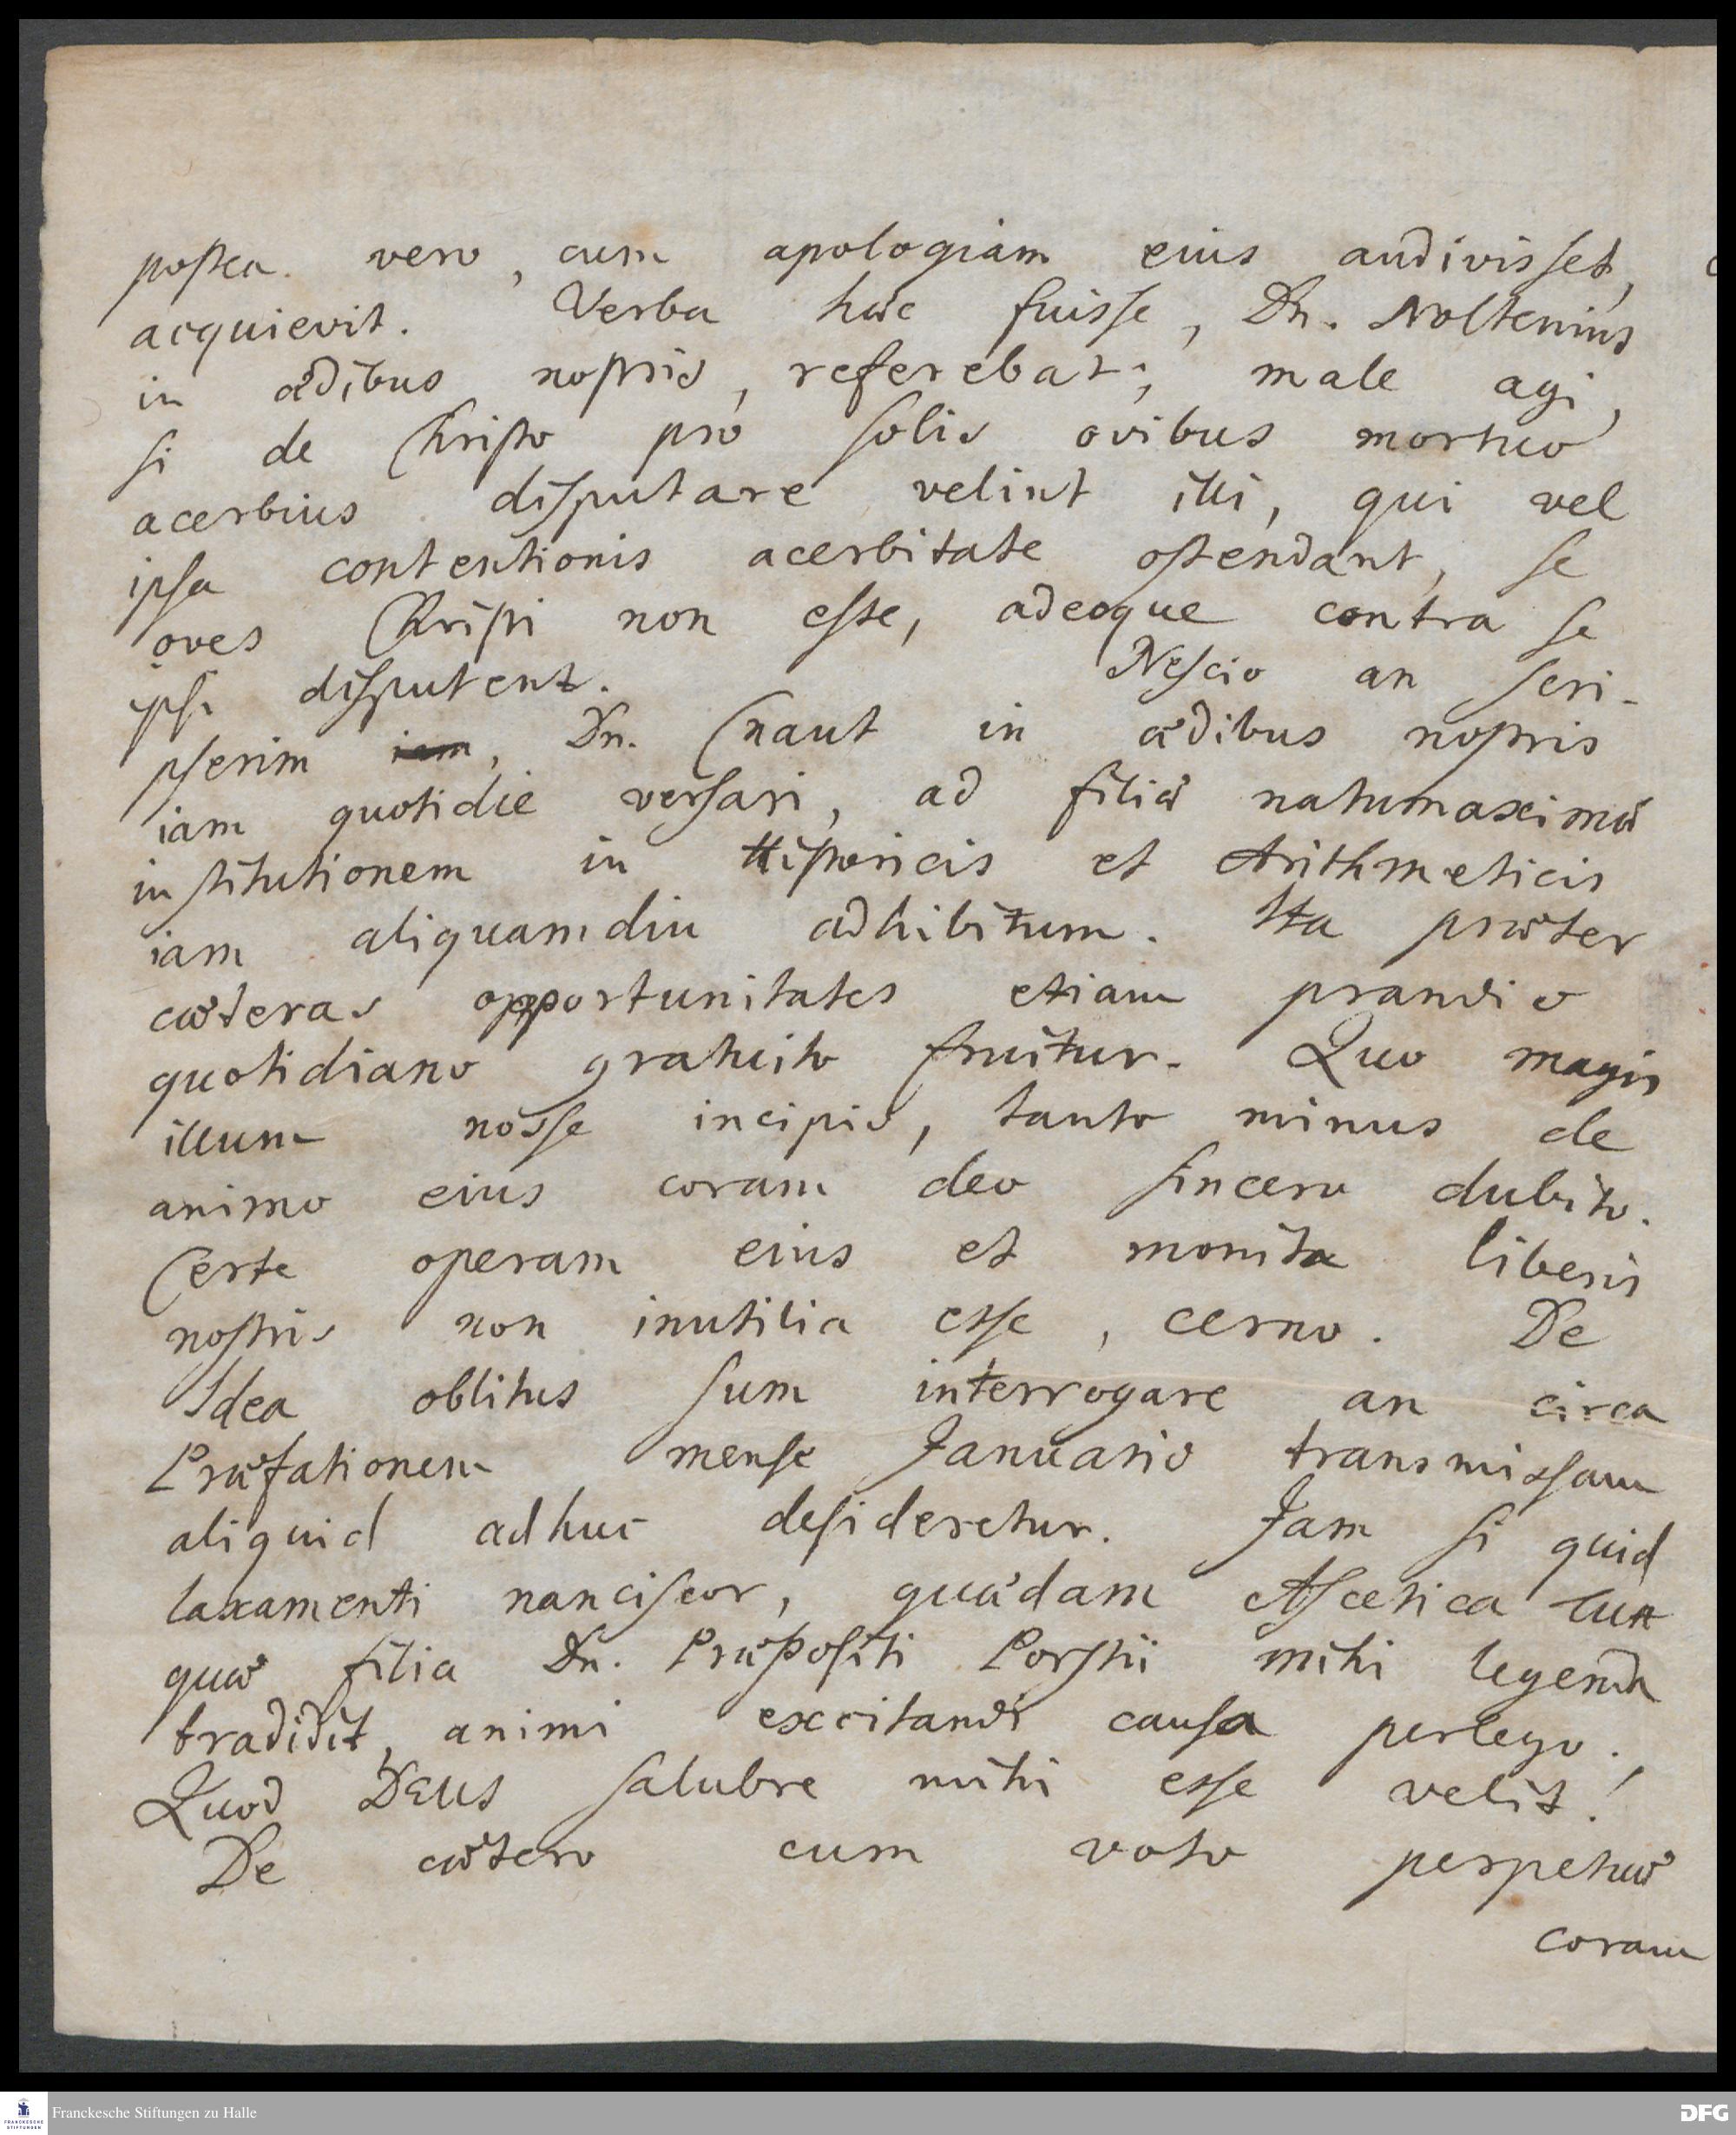 postea vero, cum apologiam eius audivisset,
acquievit. Verba haec fuisse, Dn. Noltenius
in aedibus nostris, referebat; male agi,
si de Christo pro solis ovibus mortuo
acerbius disputare velint illi, qui vel
ipsa contentionis acerbitate ostendant, se
oves Christi non esse, adeoque contra se
ipsi disputent. Nescio an scri-
pserim iam, Dn. Cnaut in aedibus nostris
iam quotidie versari, ad filiae natu maximae
institutionem in Historicis et Arithmeticis
iam aliquamdiu adhibitum. Ita praeter
caeteras opportunitates etiam prandio
quotidiano gratuito fruitur. Quo magis
illum nosse incipio, tanto minus de
animo eius coram deo sincero dubito.
Certe operam eius et monita liberis
nostris non inutilia esse, cerno. De
Idea oblitus sum interrogare an circa
Praefationem mense Januario transmissam
aliquid adhuc desideretur. Jam si quid
laxamenti nanciscor, quaedam Ascetica
quae filia Dn. Praepositi Porstii mihi legenda
tradidit, animi excitandi causa perlego.
Quod DEUS salubre mihi esse velit!
De caetero cum voto perpetuae
coram
Franckesche Stiftungen zu Halle
DFG